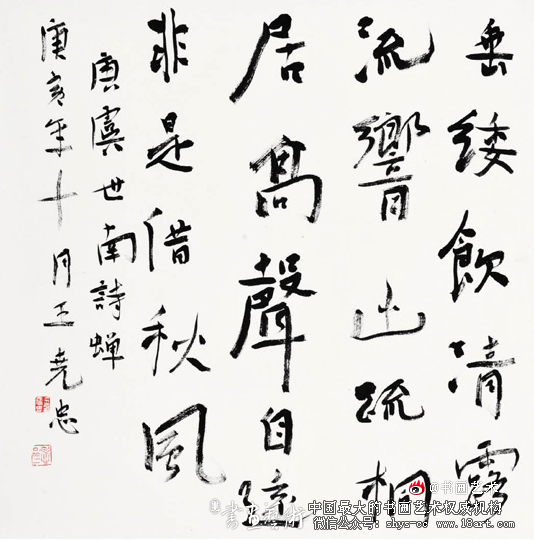 垂緌飲清露
流響出疏桐
居高聲自遠
非是借秋風
唐虞世南詩蝉
庚寅年十月王堯忠
@书画艺术
中国最大的书画艺术权威机构
微信公众号: www.18art.com